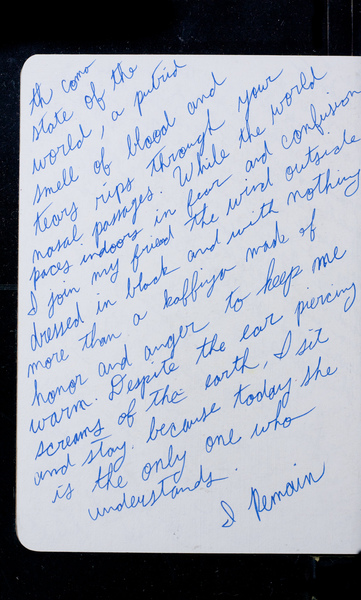 th coma
state of the
world, a putrid
smell of blood and
tears rips through your
nasal passages. While the world
paces indoors in fear and confusion
I join my friend the wind outside
dressed in black and with nothing
more than a kaffiya made of
honor and anger to keep me
warm. Despite the ear piercing
screams of the earth, I sit
and stay because today she
is the only one who
understands.
I Remain